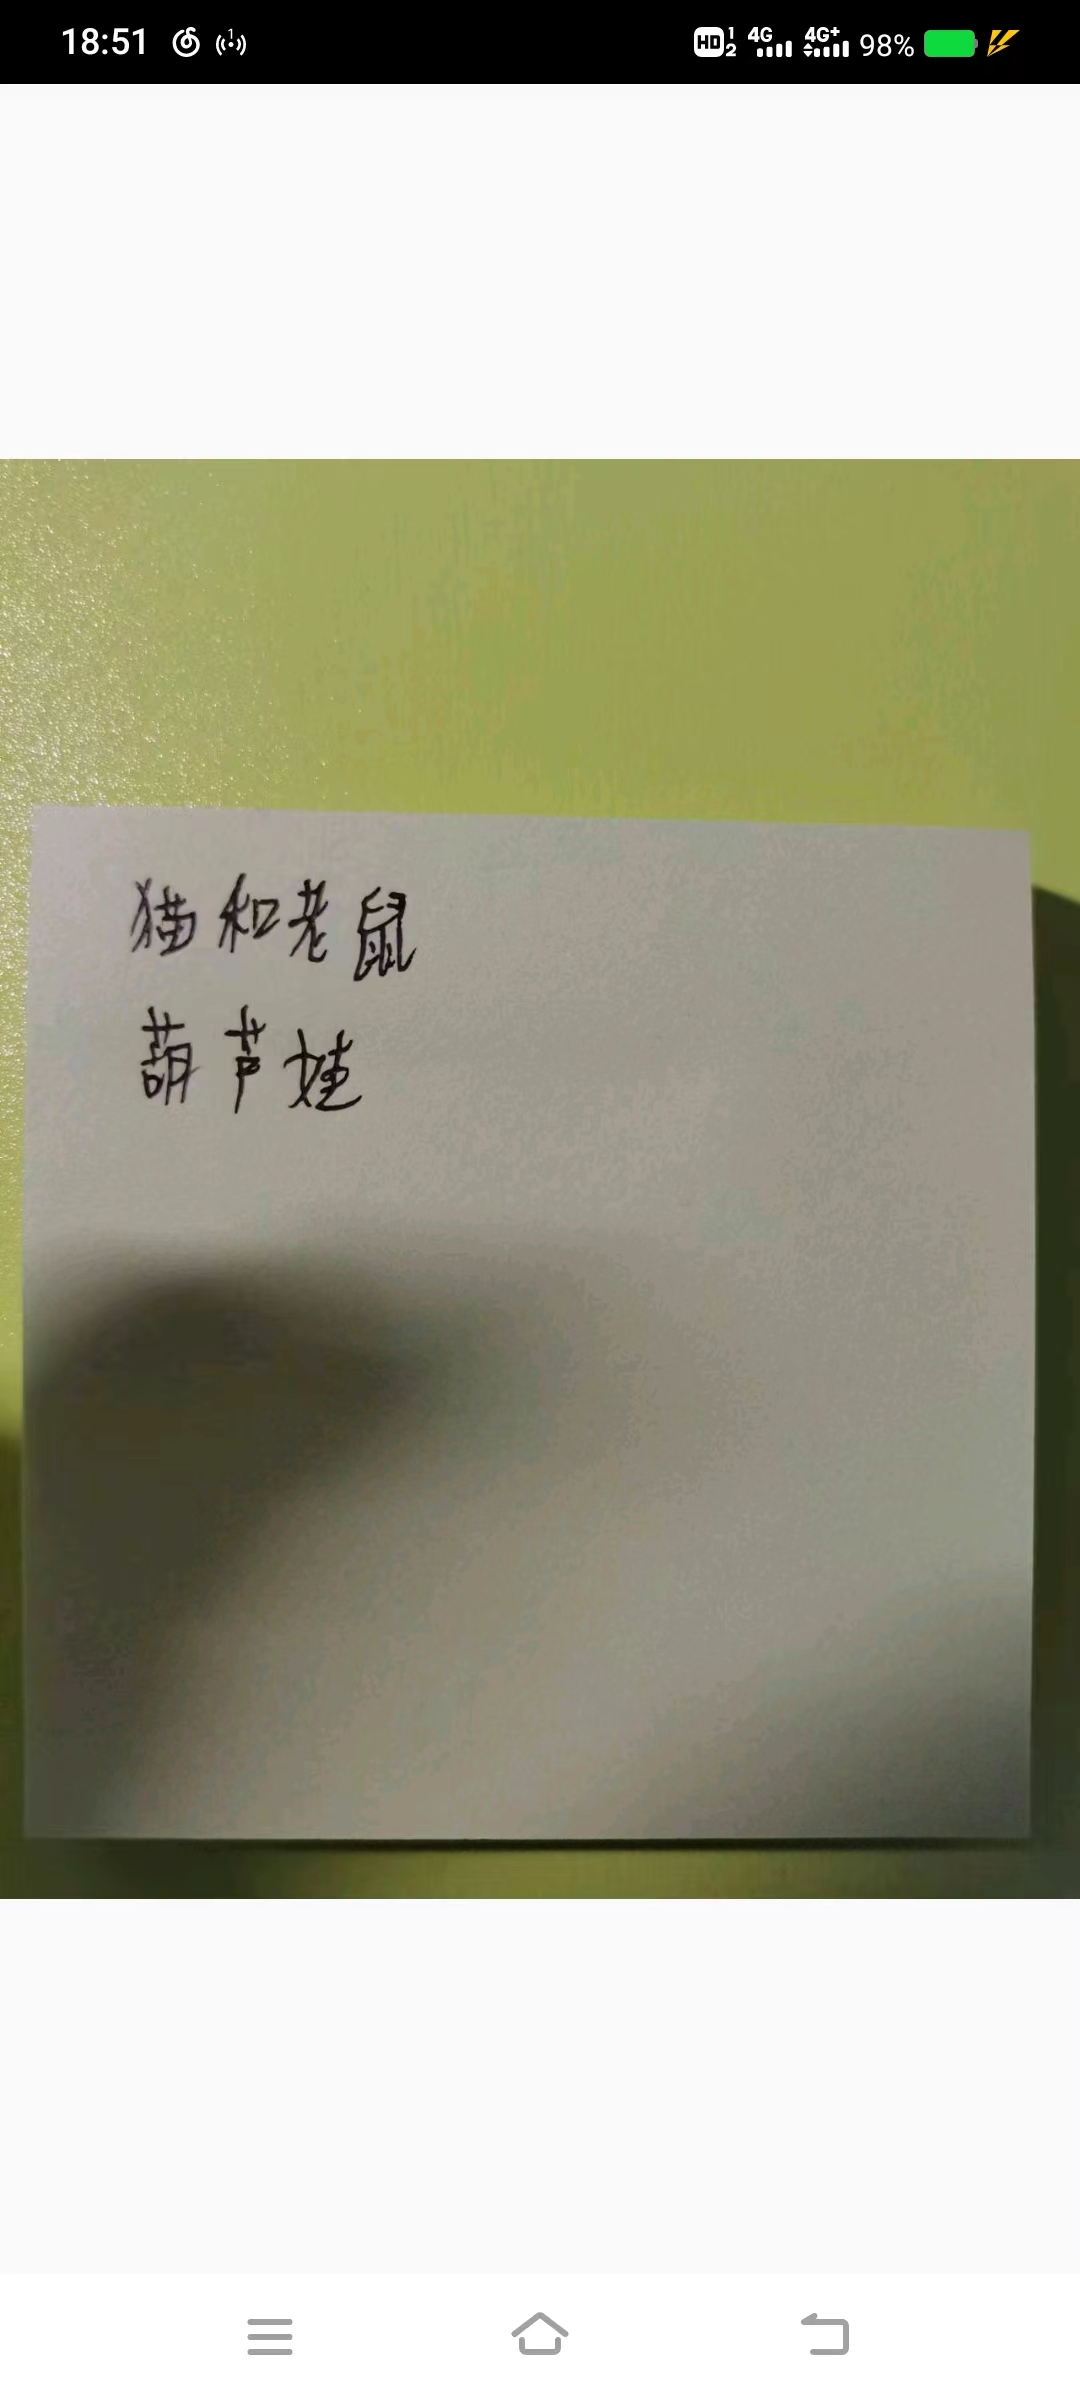 18:51 HD 1 2 4G 4G+ 98%
猫和老鼠
葫芦娃